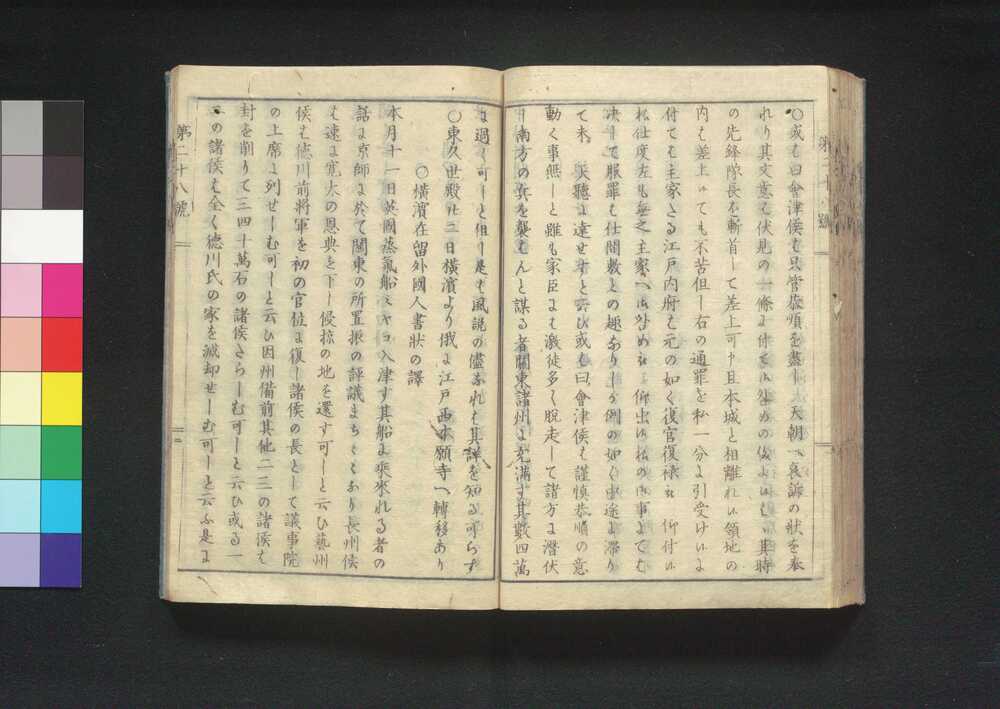 ○或も曰會津侯も只管恭順を盡し 天朝へ哀訴の状を奉
れり其文意も伏見の一條に付て 其時
の先鋒隊長を斬首して差上可申且本城と相離れ候領地の
内も差上候ても不苦但し右の通罪を私一分に引受け候に
付ても主家たる江戸内府も元の如く復官復禄被 仰付候
決して服罪も仕間敷との趣なりしが例の如く中途に滞り
て未 天聽に達せずと云ひ或も曰會津侯も謹慎恭順の意
動く事無しと雖も家臣にも激徒多く脱走して諸方に潜伏
し南方の兵を襲もんと謀る者關東諸州に充滿す其數四萬
に過く可しと但し是も風説の儘なれも其詳を知る可らす
○東久世殿廿二日横濱より俄に江戸西本願寺へ轉移あり
○横濱在留外國人書状の譯
本月十一日英國蒸氣船 入津す其船に乘來れる者の
話に京師に於て關東の所置振の評議まちまちなり長州侯
も速に寛大の恩典を下し侵掠の地を還す可しと云ひ藝州
侯も徳川前將軍を初の官位に復し諸侯の長として議事院
の上席に列せしむ可しと云ひ因州備前其他二三の諸侯も
封を削りて三四十萬石の諸侯たらしむ可しと云ひ或る一
二の諸侯も全く徳川氏の家を滅却せしむ可しと云ふ是に
第二十八號